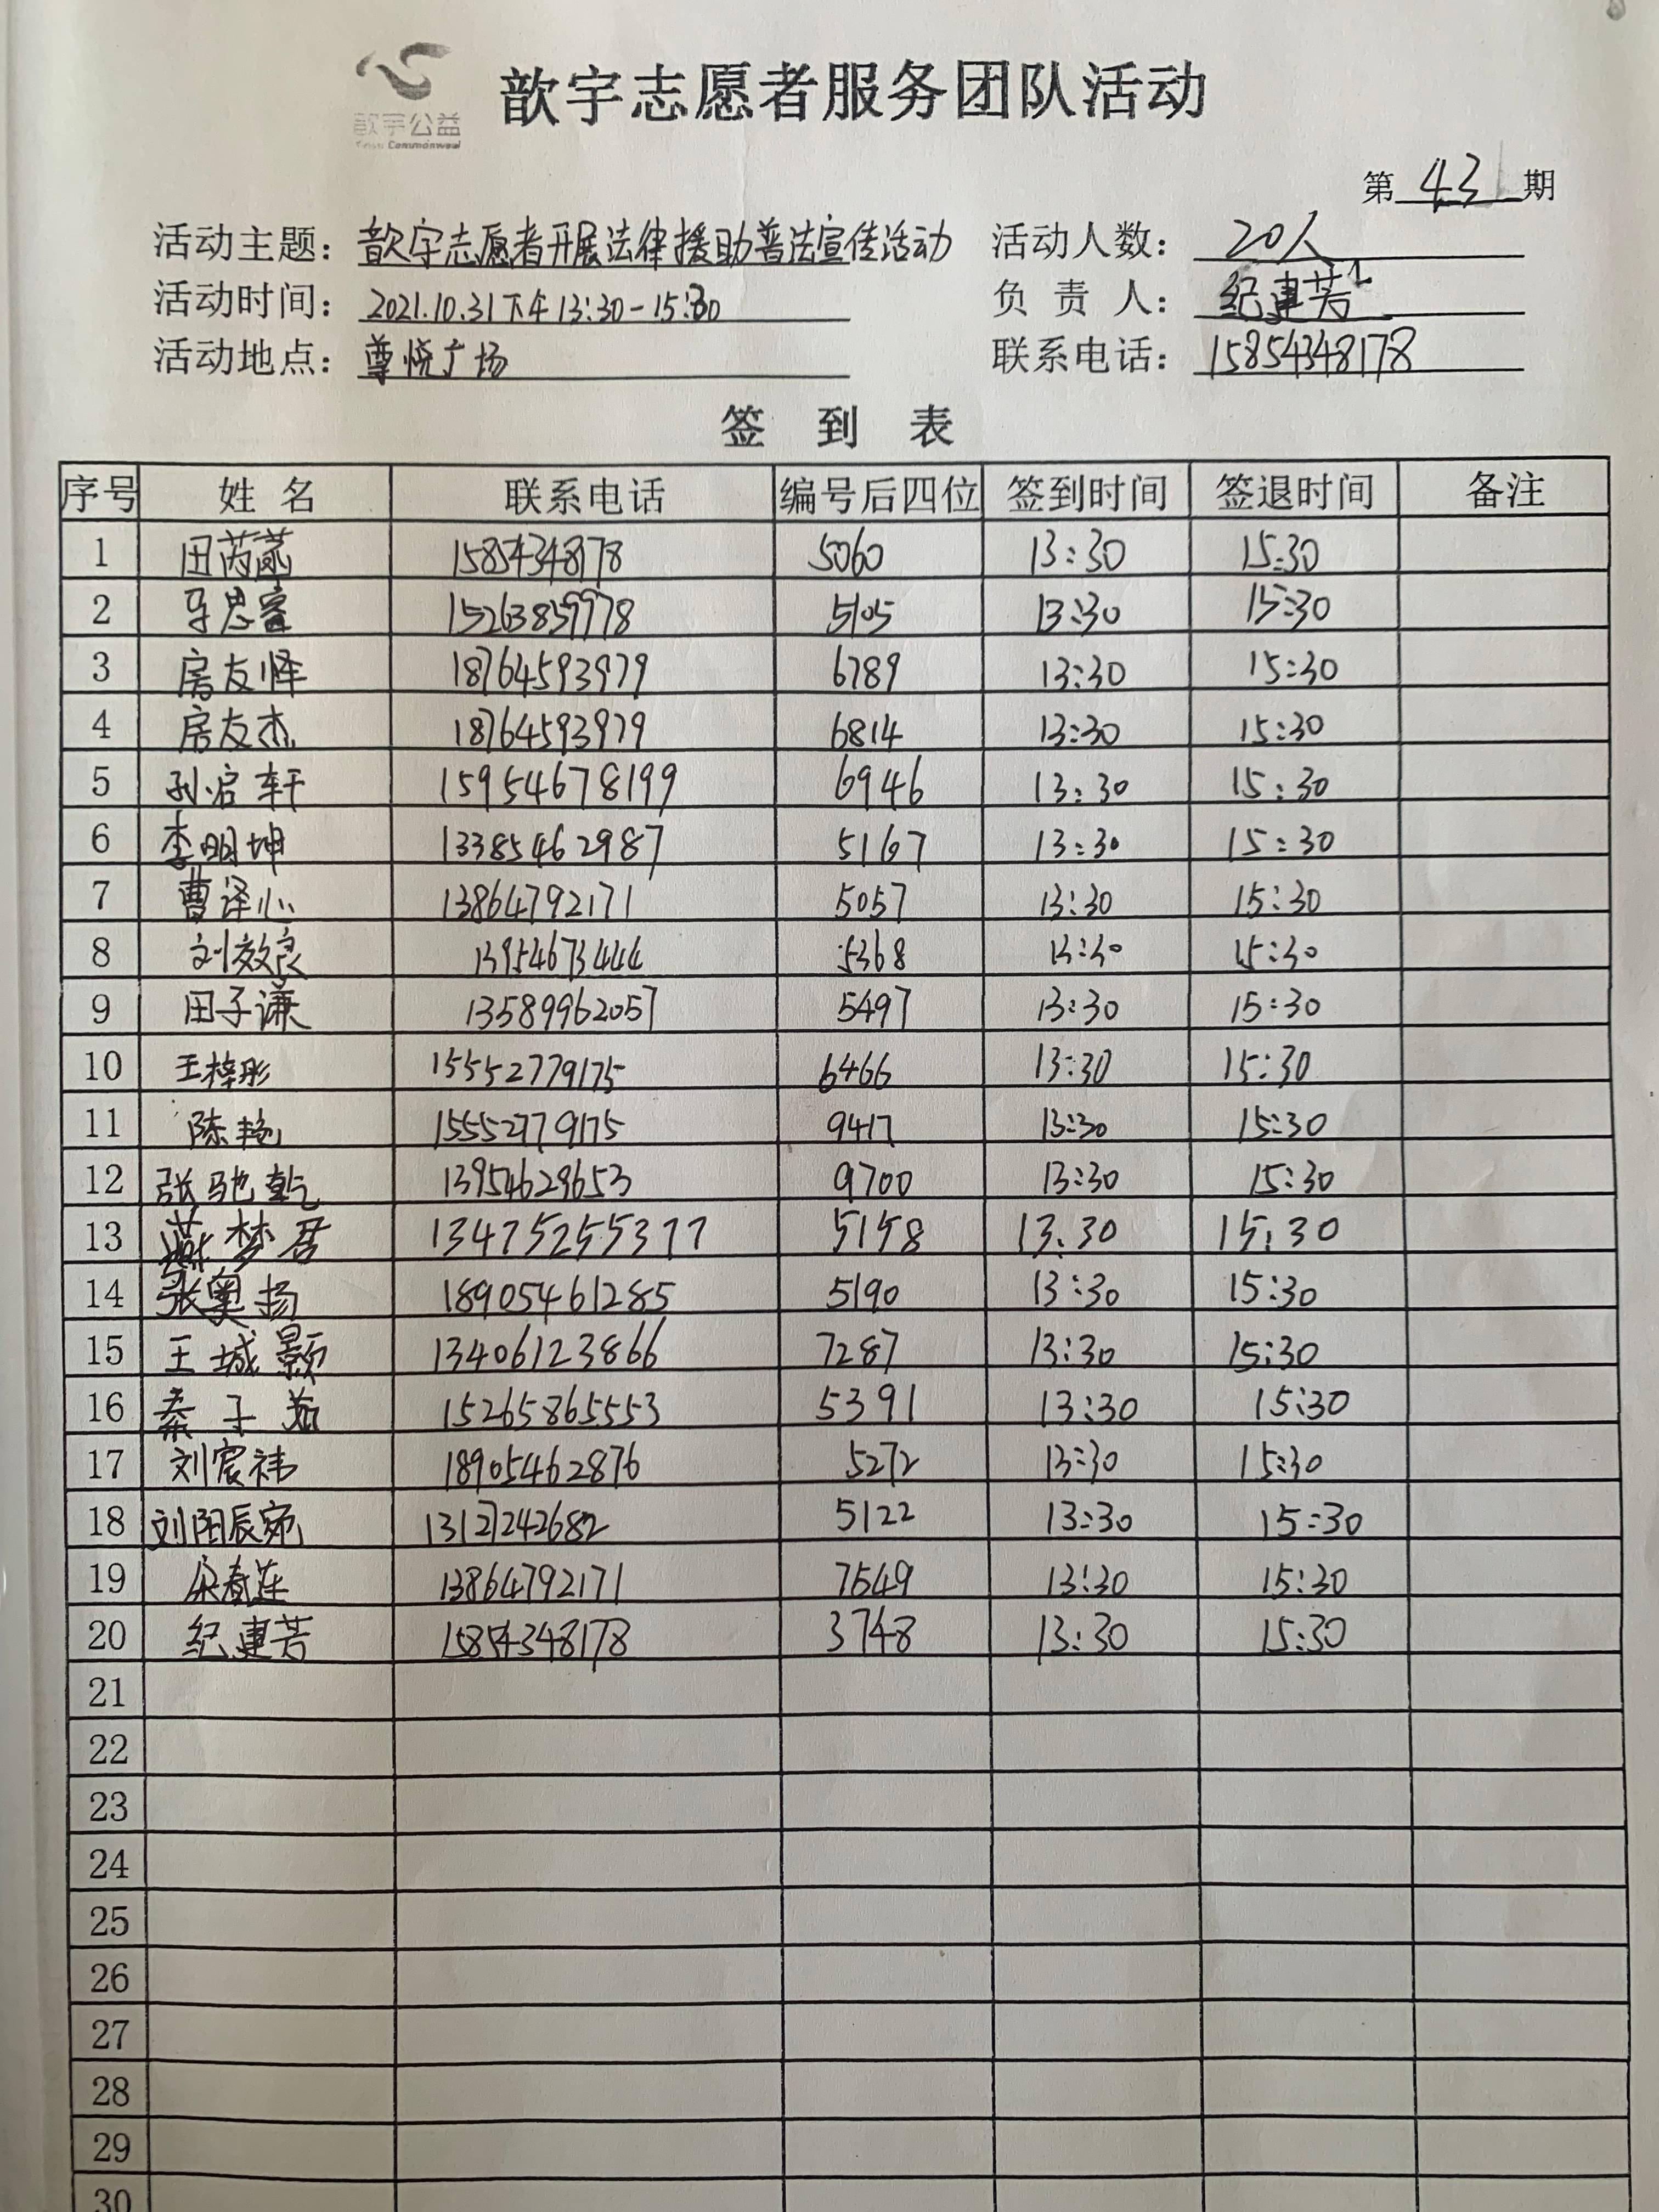 歆宇公益
Commonweal
歆宇志愿者服务团队活动
第 43 期
活动主题： 歆宇志愿者开展法律援助普法宣传活动 活动人数： 20人
活动时间： 2021.10.31下午13:30-15:30 负 责 人： 纪建芳
活动地点： 尊悦广场 联系电话： 15854348178
签 到 表
序号 姓 名 联系电话 编号后四位 签到时间 签退时间 备注
1 田芮 15854348178 5060 13:30 15:30
2 5105 13:30 15:30
3 房友怿 18764593979 6789 13:30 15:30
4 房友杰 18764593979 6814 13:30 15:30
5 孙启轩 15954678199 6946 13:30 15:30
6 李明坤 13385462987 5167 13:30 15:30
7 曹译心 13864792171 5057 13:30 15:30
8 刘效良 13954673444 5368 13:30 15:30
9 田子谦 13589962057 5497 13:30 15:30
10 王梓彤 15552779175 6466 13:30 15:30
11 陈艳 15552779175 9417 13:30 15:30
12 张驰乾 13954629653 9700 13:30 15:30
13 燕梦君 13475255377 5158 13:30 15:30
14 张奥扬 18905461285 5190 13:30 15:30
15 王城颢 13406123866 7287 13:30 15:30
16 秦子茹 15265865553 5391 13:30 15:30
17 刘宸祎 18905462876 5272 13:30 15:30
18 刘阳辰宛 13127242682 5122 13:30 15:30
19 13864792171 7549 13:30 15:30
20 纪建芳 15854348178 3748 13:30 15:30
21
22
23
24
25
26
27
28
29
30